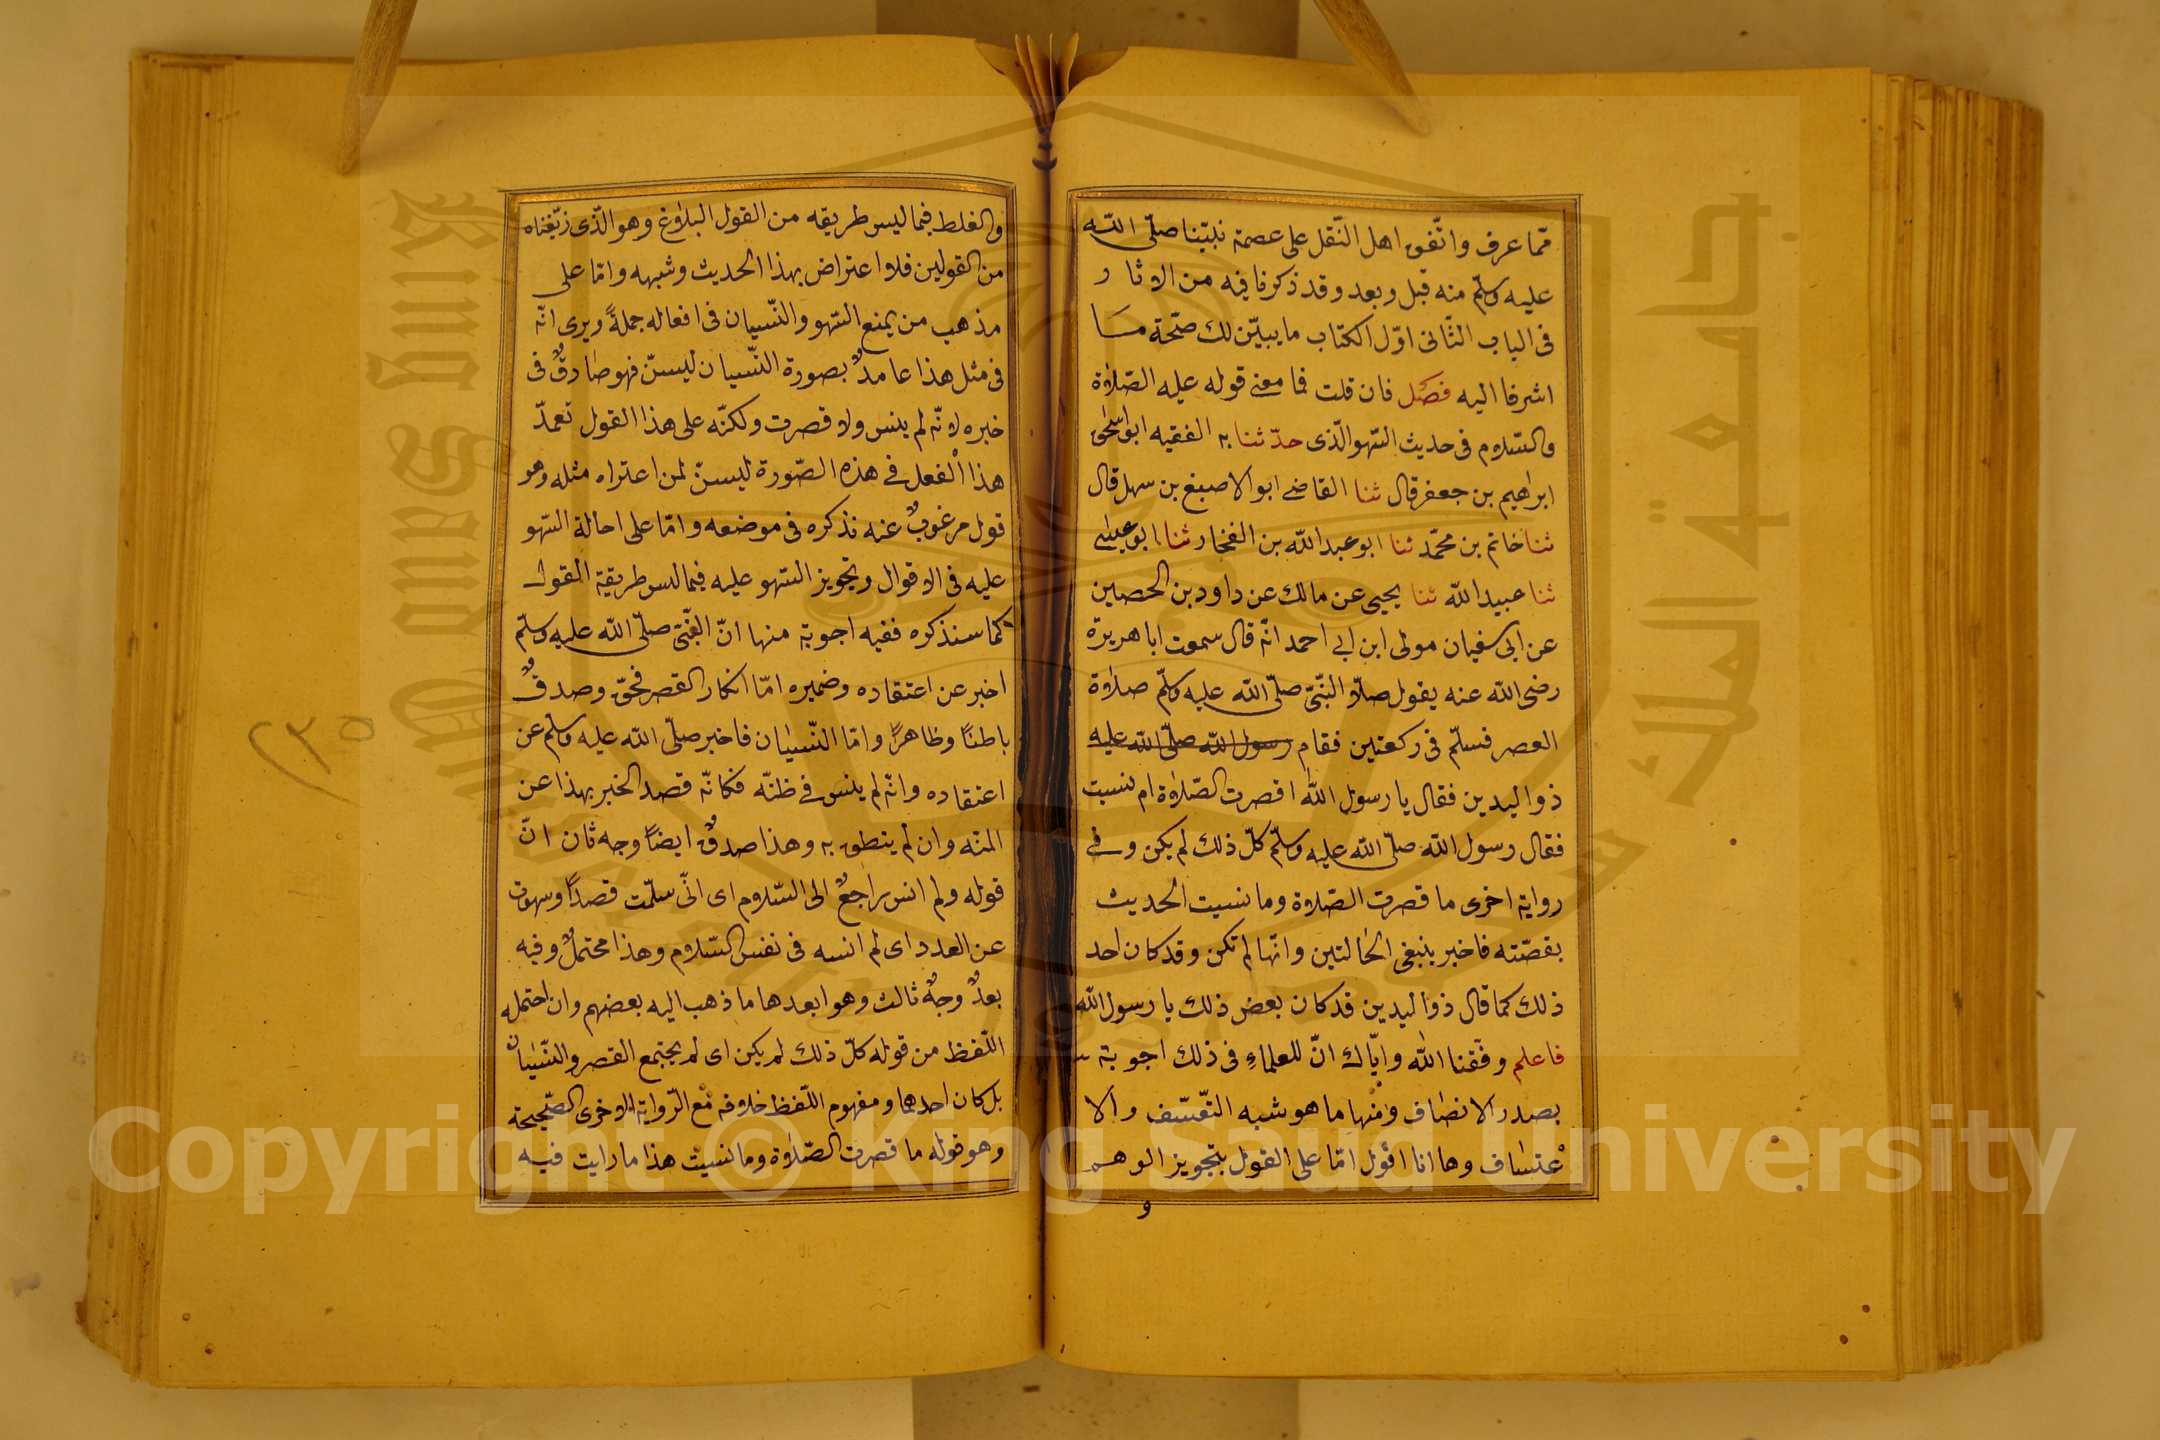 ممّا عرف واتّفق اهل النّقل على عصمة نبيّنا صلّى اللّه
عليه وسلّم منه قبل وبعد وقد ذكرنا فيه من الاثار
فى الباب الثّانى اوّل الكتاب ما يبيّن لك صحّة ما
اشرنا اليه فصل فان قلت فما معنى قوله عليه الصّلاة
والسّلام فى حديث السّهو الّذى حدّثنا به الفقيه ابو اسحق
ابراهيم بن جعفر قال ثنا القاضى ابو الاصبغ بن سهل قال
ثنا حاتم بن محمّد ثنا ابو عبد اللّه بن الفخار ثنا ابو عيسى
ثنا عبيد اللّه ثنا يحيى عن مالك عن داود بن الحصين
عن ابى سفيان مولى ابن ابى احمد انّه قال سمعت ابا هريرة
رضى اللّه عنه يقول صلّا النّبىّ صلّى اللّه عليه وسلّم صلاة
العصر فسلّم فى ركعتين فقام رسول اللّه صلّى اللّه عليه
ذو اليدين فقال يا رسول اللّه اقصرت الصّلاة ام نسيت
فقال رسول اللّه صلّى اللّه عليه وسلّم كلّ ذلك لم يكن وفى
رواية اخرى ما قصرت الصّلاة وما نسيت الحديث
بقصّته فاخبر بنفى الحالتين وانّها لم تكن وقد كان احد
ذلك كما قال ذو اليدين قد كان بعض ذلك يا رسول اللّه
فاعلم وفّقنا اللّه وايّاك انّ للعلماءِ فى ذلك اجوبة
بصدر الانصاف ومنها ما هو شبه التّعسّف والا
عتساف وها انا اقول امّا على القول بتجويز الوهم
و
والغلط فيما ليس طريقه من القول البلاغ وهو الّذى زيّفناه
من القولين فلا اعتراض بهذا الحديث وشبهه وامّا على
مذهب من يمنع السّهو والنّسيان فى افعاله جملةً ويرى انّه
فى مثل هذا عامدٌ بصورة النّسيان ليسنّ فهو صادقٌ فى
خبره لانّه لم ينس ولا قصرت ولكنّه على هذا القول تعمدّ
هذا الفعل فى هذه الصّورة ليسنّ لمن اعتراه مثله وهو
قول مرغوبٌ عنه نذكره فى موضعه وامّا على احالة السّهو
عليه فى الاقوال وتجويز السّهو عليه فيما ليس طريقة القول
كما سنذكره ففيه اجوبة منها انّ النّبىّ صلّى اللّه عليه وسلّم
اخبر عن اعتقاده وضميره امّا انكار القصر فحقّ وصدقٌ
باطنًا وظاهرًا وامّا النّسيان فاخبر صلّى اللّه عليه وسلّم عن
اعتقاده وانّه لم ينس فى ظنّه فكانّه قصد الخبر بهذا عن
المنّه وان لم ينطق به وهذا صدقٌ ايضًا وجه ثان انّ
قوله ولم انس راجعٌ الى السّلام اى انّى سلّمت قصدًا وسهوت
عن العدد اى لم انسه فى نفس السّلام وهذا محتملٌ وفيه
بعدٌ وجهٌ ثالث وهو ابعدها ما ذهب اليه بعضهم وان احتمله
اللّفظ من قوله كلّ ذلك لم يكن اى لم يجتمع القصر والنّسيان
بل كان احدهما ومفهوم اللّفظ خلافه مع الرّواية الاخرى الصّحيحة
وهو قوله ما قصرت الصّلاة وما نسيت هذا ما رايت فيه
٢٣٥
Copyright © King Saud University
King Saud University
جامعة الملك